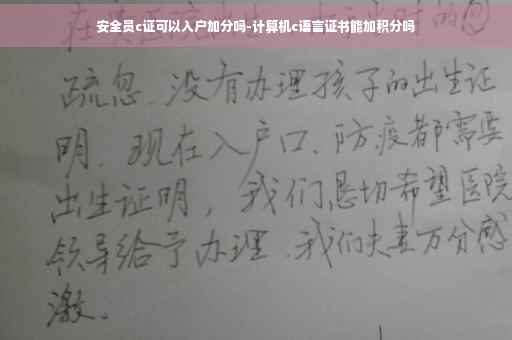 安全员c证可以入户加分吗-计算机c语言证书能加积分吗
疏忽.没有办理孩子的出生证
明.现在入户口、防疫都需要
出生证明，我们恳切希望医院
领导给予办理.我们夫妻万分感
激。